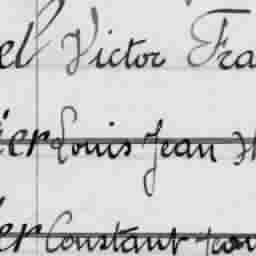 el Victor Fra
ier Louis Jean
er Constant